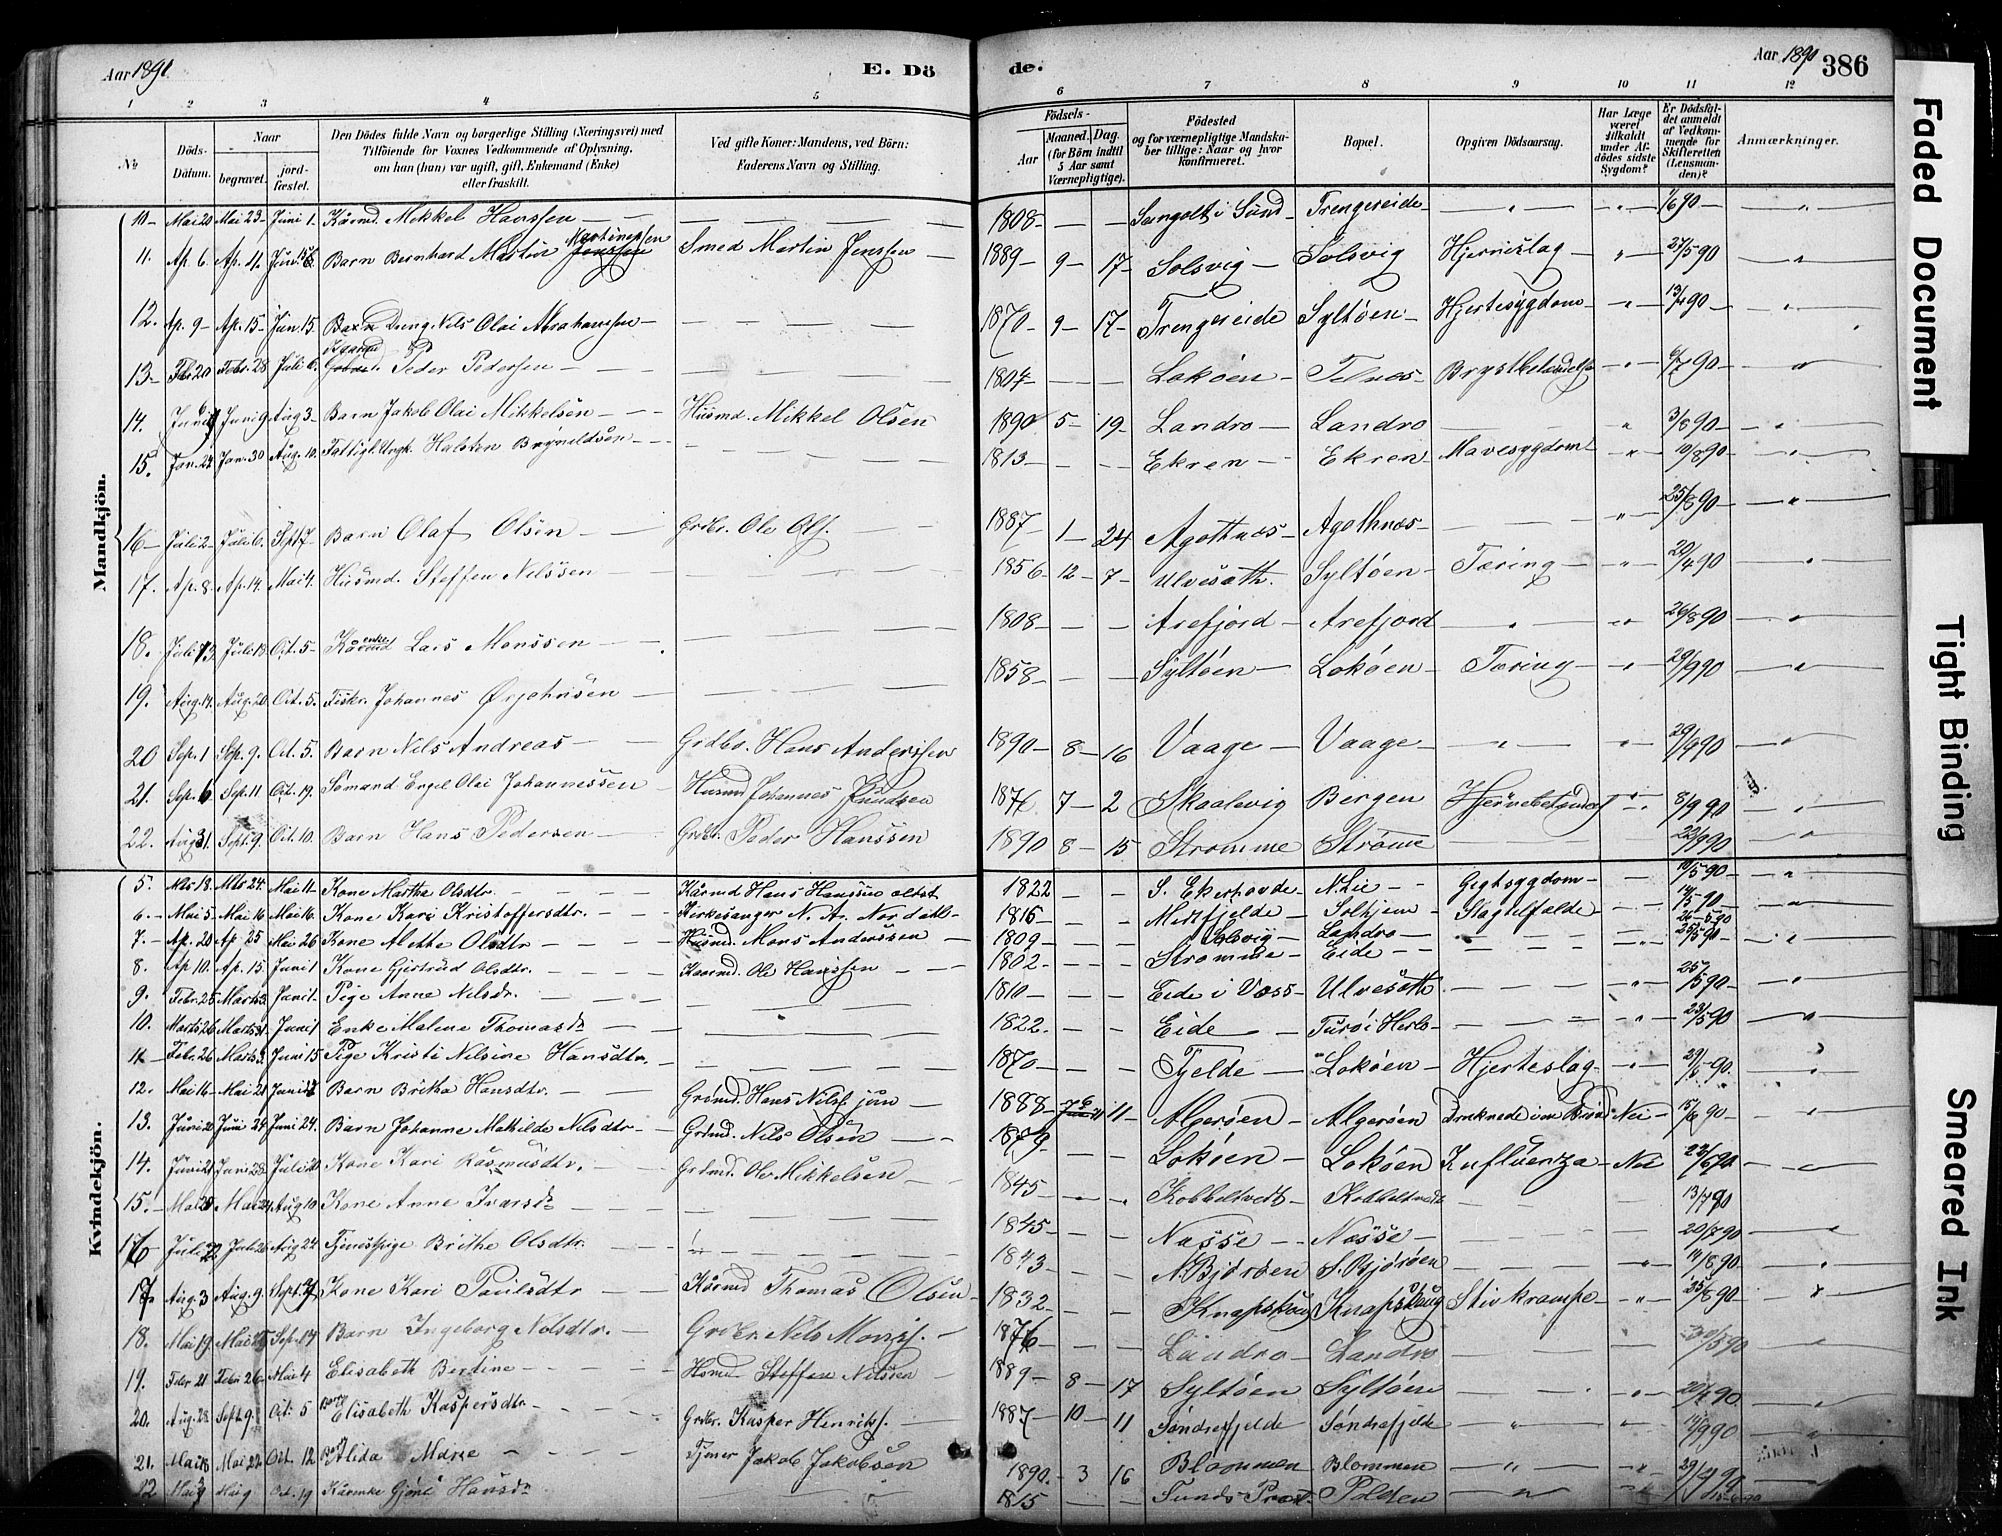 Aar 1890.
E. Dö
de.
Aar 1890
386
1 2 3 4 5
6 7 8 9 10 11 12
№
Döds-Datum.
Naar
begravet.
jord-fæstet.
Den Dödes fulde Navn og borgerlige Stilling (Næringsvei) med
Tilföiende for Voxnes Vedkommende af Oplysning,
om han (hun) var ugift, gift, Enkemand (Enke)
eller fraskilt.
Ved gifte Koner: Mandens, ved Börn:
Faderens Navn og Stilling.
Födsels-
Aar
Maaned. Dag.
(for Börn indtil
5 Aar samt
Værnepligtige).
Födested
og for værnepligtige Mandska-
ber tillige: Naar og hvor
konfirmeret.
Bopæl.
Opgiven Dödsaarsag.
Har Læge
været
tilkaldt
under Af-
dödes sidste
Sygdom?
Er Dödsfal-
det anmeldt
af Vedkom-
mende for
Skifteretten
(Lensman-
den)?
Anmærkninger.
Mandkjön.
10 Mai 20 Mai 23 Juni 1. Kårmd. Mikkel Hanssen 1808 Sangolt i Sund Trengereide 1/6 90
11. Ap. 6 Ap. 11 Barn Bernhard Martin Martinussen Jenssen Smed Martin Jenssen 1889 9 17 Solsvig Solsvig Hjernislag 27/5 90
12. Ap. 9 Ap. 15 Jun. 15 Barn Dreng Nils Olai Abrahamsen 1870 9 17 Trengereide Syltøen Hjertesygdom 13/4 90
13 Febr. 20 Febr. 28 Juli 6. Peder Pedersen 1804 Lokøen Telnæs Brystbetændelse 6/7 90
14. Juni 9 Aug 3 Barn Jakob Olai Mikkelsen Husmd. Mikkel Olsen 1890 5 19 Landro Landro 3/8 90
15. Jan. 24 Jan. 30 Aug. 10. Fattigl. Ungk. Halsten Brynildsen 1813 Ekren Ekren Mavesygdom 10/8 90
16 Juli 2 Juli 6. Sept. 7 Barn Olaf Olsen Grdbr. Ole Ols. 1887 1 24 Agothnæs Agothnæs 25/8 90
17. Ap. 8. Ap. 14. Mai 4. Husmd. Steffen Nilssen 1856 12 7 Ulvesæth. Syltøen Tæring 20/4 90
18. Juli 13 Juli 18 Oct. 5 Kårenkemd Lars Monssen 1808 Arefjord Arefjord 26/8 90
19. Aug. 14. Aug. 20 Oct. 5. Fiskr. Johannes Ørjohnsen 1858 Syltøen Lokøen Tæring 29/9 90
20 Sep. 1 Sep. 9. Oct. 5. Barn Nils Andreas Grdbr. Hans Anderssen 1890 8 16 Vaage Vaage 29/9 90
21. Sep. 6 Sep. 11 Oct. 19. Sømand Engel Olai Johannessen Husmd Johannes Knudsen 1876 7 2 Skaalevig Bergen Hjernebetændels 8/9 90
22. Aug 31. Sept. 9. Oct. 10. Barn Hans Pedersen Grdbr. Peder Hanssen 1890 8 15 Strømme Strømme 22/9 90
Kvindekjön.
5. Mrs 18. Mrs 24. Mai 11. Kone Martha Olsdtr. Kårmd Hans Hanssen 1822 S. Ekerhovde N. Lie Gigtsygdom 10/5 90
6. Mai 5 Mai 16 Mai 16. Kone Kari Kristoffersdtr. Kirkesanger N. A. Nordahl 1816 Midtfjelde Solhjem Slagtilfælde 14/5 90
7. Ap. 20 Ap 25 Mai 26 Kone Alethe Olsdtr Husmd. Mons Anderssen 1809 Solsvig Landro 26-5-90
8. Ap 10. Ap. 15 Juni 1 Kone Gjertrud Olsdtr. Kaarmd. Ole Hanssen 1802 Strømme Eide 25/5 90
9. Febr. 25 Marts 3. Juni 1. Pige Anne Nilsdr. 1810 Eide i Voss Ulvesæth 25/5 90
10. Marts 26 Marts 31. Juni 1 Enke Malene Thomasdr 1822. Eide Turøi Herlø 23/5 90
11 Febr. 26 Marts 3. Juni 15 Pige Kristi Nilsine Hansdtr. 1870 Tjelde Lokøen Hjerteslag 29/6 90.
12. Mai 16 Mai 21 Barn Britha Hansdtr. Grdmd. Hans Nilss. jun 1888 11 Algerøen Algerøen Druknede i en Brønd Nei 15/6 90
13. Juni 24 Juni 24. Barn Johanne Mathilde Nilsdtr Grdmd. Nils Olsen 1879 Lokøen Lokøen Influenza Nei 22/6 90
14. Juni 21 Juni 28. Juli 20 Kone Kari Rasmusdtr. Grdmd. Ole Mikkelsen 1845 Kobbeltvedt Kobbeltvedt 13/7 90
15. Mai 20 Mai 24 Aug 10 Kone Anne Ivarsdr 1845 Næsse Næsse 20/7 90
16 Juli 22 Juli 26 Aug 24 Tjenestpige Brithe Olsdtr. 1843 N. Bjørøen S. Bjørøen 14/8 90
17. Aug. 3 Aug. 9. Sept. 7 Kone Kari Poulsdtr Kårmd Thomas Olsen 1832 Knapskoug Knapskoug Stivkrampe 25/8 90
18. Mai 19. Mai 25 Sept. 14 Barn Ingeborg Nilsdtr. Grdbr. Nils Monss. 1876 Landro Landro 30/5 90
19. Febr 21 Febr 26 Mai 4 Elisabeth Berdine Hsmd Steffen Nilssen 1889 8 17 Syltøen Syltøen 20/4 90
20. Aug. 28 Sept. 9. Oct. 5 Barn Elisabeth Kaspersdtr. Grdbr. Kasper Henriks. 1887 10 11 Søndrefjelde Søndrefjelde 14/9 90
21. Mai 18 Mai 22 Oct. 12 Barn Alida Marie Tjener Jakob Jakobsen 1890. 3 16 Blommen Blommen 29/4 90
22 Mai 9 Oct. 19 Kårenke Gjøri Hansdr 1815 Sunds Præst. Polden
Faded Document
Tight Binding
Smeared Ink